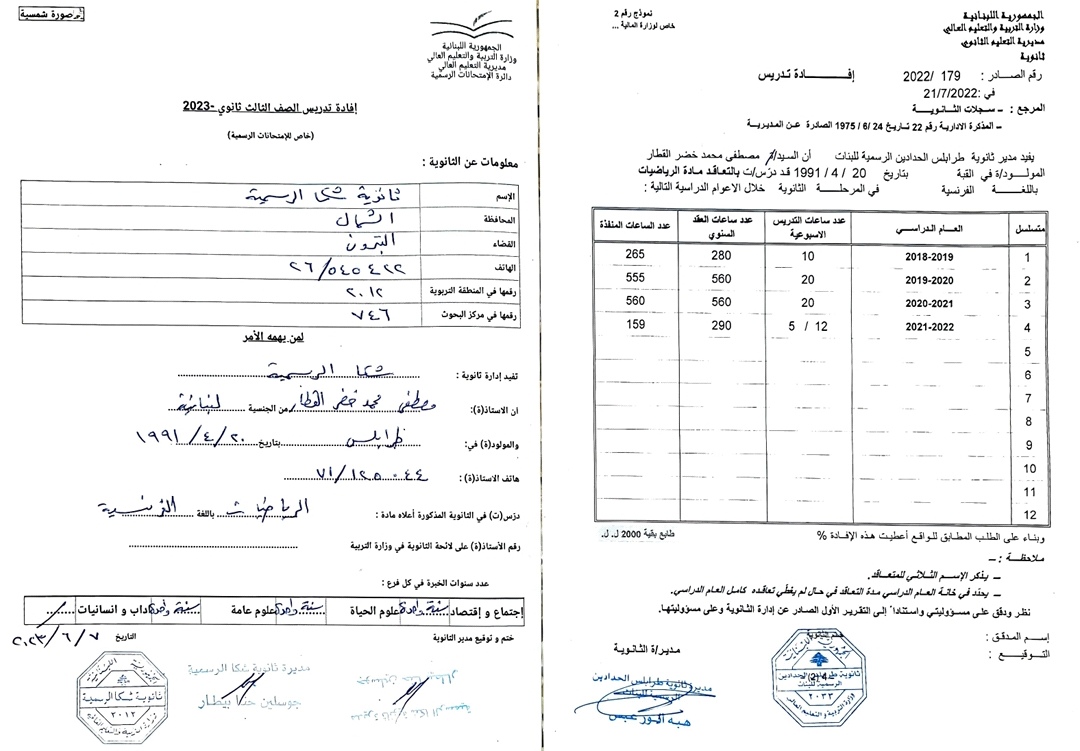 صورة شمسية
الجمهورية اللبنانية
وزارة التربية والتعليم العالي
مديرية التعليم الثانوي
دائرة الإمتحانات الرسمية
إفادة تدريس الصف الثالث ثانوي -2023
(خاص للإمتحانات الرسمية)
معلومات عن الثانوية :
الإسم ثانوية شكا الرسمية
المحافظة الشمال
القضاء البترون
الهاتف ٢٦/٥٤٥٤٢٢
رقمها في المنطقة التربوية ٢٠١٢
رقمها في مركز البحوث ٧٤٦
لمن يهمه الأمر
تفيد إدارة ثانوية : شكا الرسمية
ان الاستاذ(ة): مصطفى محمد خضر القطار من الجنسية لبنانية
والمولود(ة) في: طرابلس بتاريخ ٢٠/٤/١٩٩١
هاتف الاستاذ(ة): ٧١/١٢٥٠٤٤
درّس(ت) في الثانوية المذكورة أعلاه مادة : الرياضيات باللغة الفرنسية
رقم الأستاذ(ة) على لائحة الثانوية في وزارة التربية
عدد سنوات الخبرة في كل فرع :
إجتماع و إقتصاد سنة واحدة علوم الحياة سنة واحدة علوم عامة سنة واحدة آداب و انسانيات
ختم و توقيع مدير الثانوية التاريخ ٧/٦/٢٠٢٣
مديرة ثانوية شكا الرسمية
جوسلين حنا بيطار
ثانوية شكا الرسمية
٢٠١٢
الجمهورية اللبنانية
وزارة التربية والتعليم العالي
مديرية التعليم الثانوي
ثانوية
نموذج رقم 2
خاص لوزارة المالية ...
رقم الصادر : 179 /2022
إفـــــادة تدريس
في :21/7/2022
المرجع : – سجلات الثانوية
– المذكرة الادارية رقم 22 تاريخ 24 /6/ 1975 الصادرة عن المديرية
يفيد مدير ثانوية طرابلس الحدادين الرسمية للبنات أن السيد/ة مصطفى محمد خضر القطار
المولود/ة في القبة بتاريخ 20 / 4 / 1991 قد درّس/ت بالتعاقد مادة الرياضيات
باللغة الفرنسية في المرحلة الثانوية خلال الاعوام الدراسية التالية :
متسلسل العام الدراسي عدد ساعات التدريس الاسبوعية عدد ساعات العقد السنوي عدد الساعات المنفذة
1 2018-2019 10 280 265
2 2019-2020 20 560 555
3 2020-2021 20 560 560
4 2021-2022 12 / 5 290 159
5
6
7
8
9
10
11
12
وبناء على الطلب المطابق للواقع أعطيت هذه الإفادة % طابع بقية 2000 ل.ل.
ملاحظة : –
– يذكر الإسم الثلاثي للمتعاقد.
– يحدّد في خانة العام الدراسي مدة التعاقد في حال لم يغطّي تعاقده كامل العام الدراسي.
نظر ودقق على مسؤوليتي واستناداً إلى التقرير الأول الصادر عن إدارة الثانوية وعلى مسؤوليتها.
إسم المدقق :
التوقيع :
مدير/ة الثانوية
مديرة ثانوية طرابلس الحدادين
الرسمية للبنات
ثانوية طرابلس الحدادين
الرسمية للبنات
٢٠٣٣
وزارة التربية والتعليم العالي